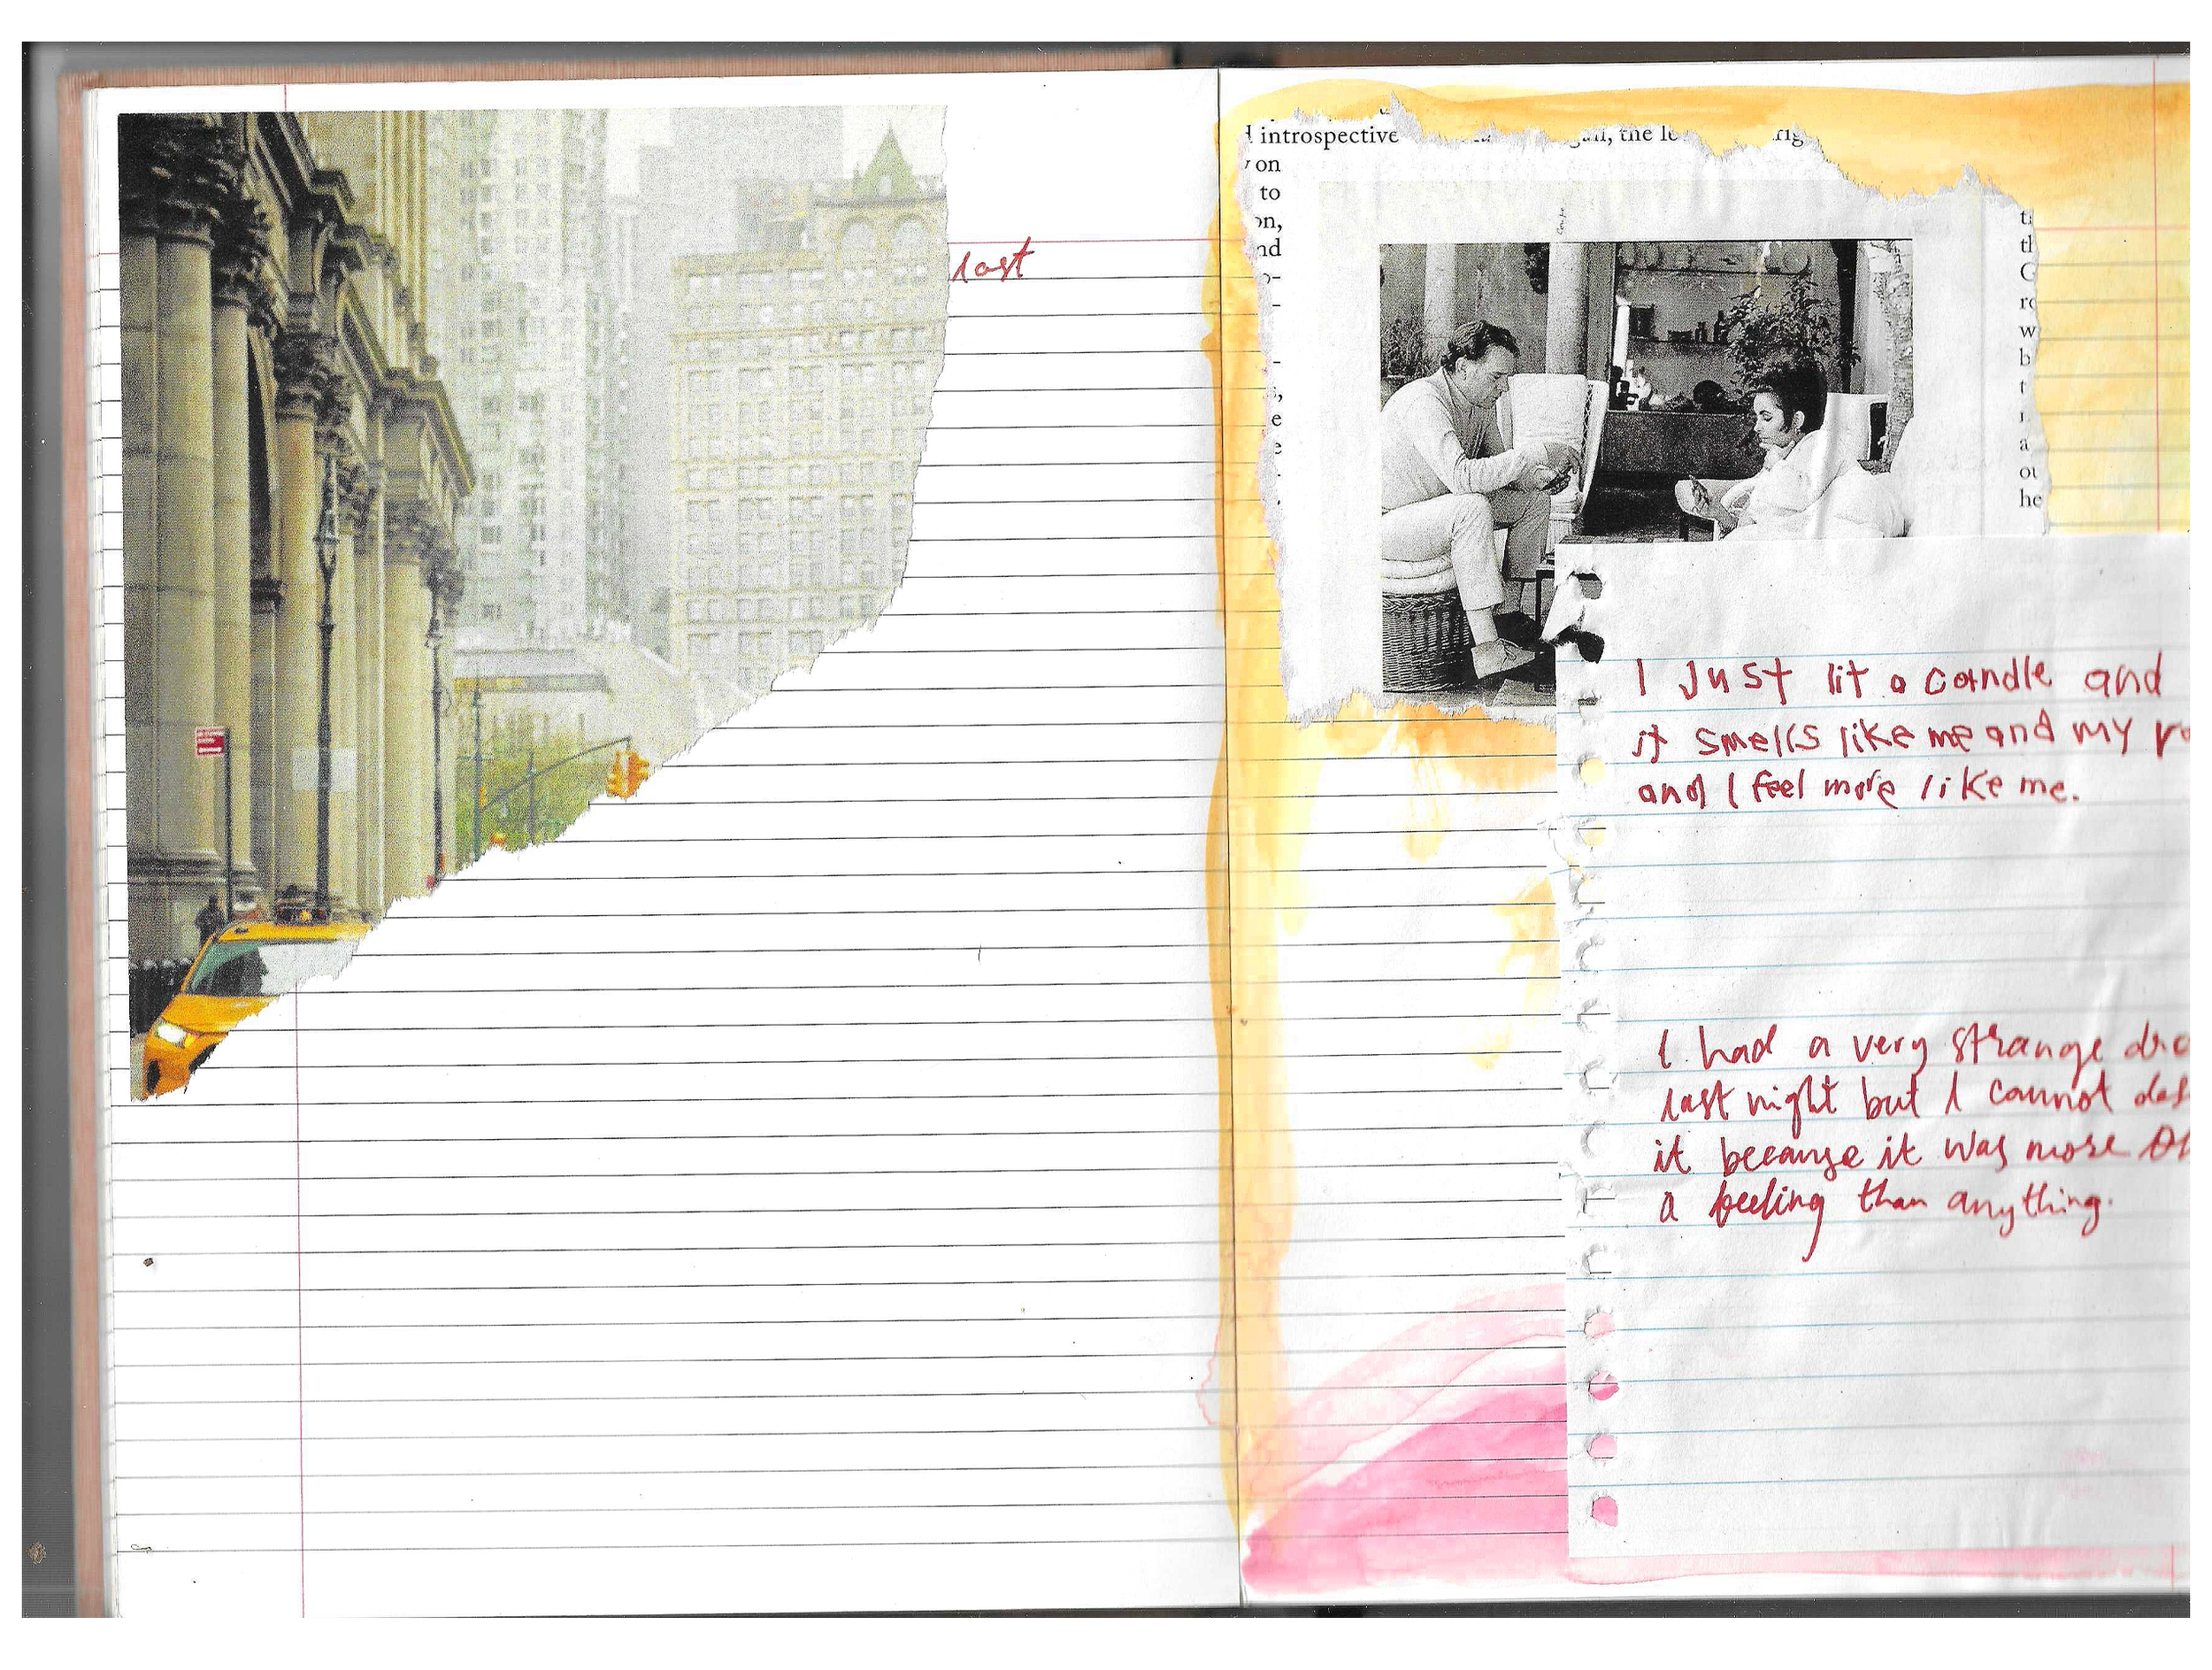 last
introspective
on
to
on,
nd
the
I Just lit a candle and
it smells like me and my
and I feel more like me.
I had a very strange
last night but I cannot
it because it was more
a feeling than anything.